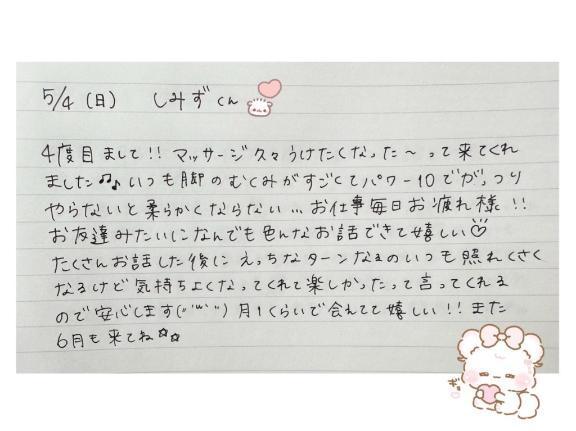 5/4 (日) しみずくん
4度目まして!! マッサージ久々うけたくなった〜って来てくれ
ました♫♪ いつも脚のむくみがすごくてパワー10でがっつり
やらないと柔らかくならない… お仕事毎日お疲れ様!!
お友達みたいになんでも色んなお話できて嬉しい♡
たくさんお話した後にえっちなターンなるのいつも照れくさく
なるけど気持ちよくなってくれて楽しかったって言ってくれる
ので安心します(〃'''〃) 月1くらいで会えてて嬉しい!! また
6月も来てね☆☆
ぎゅ